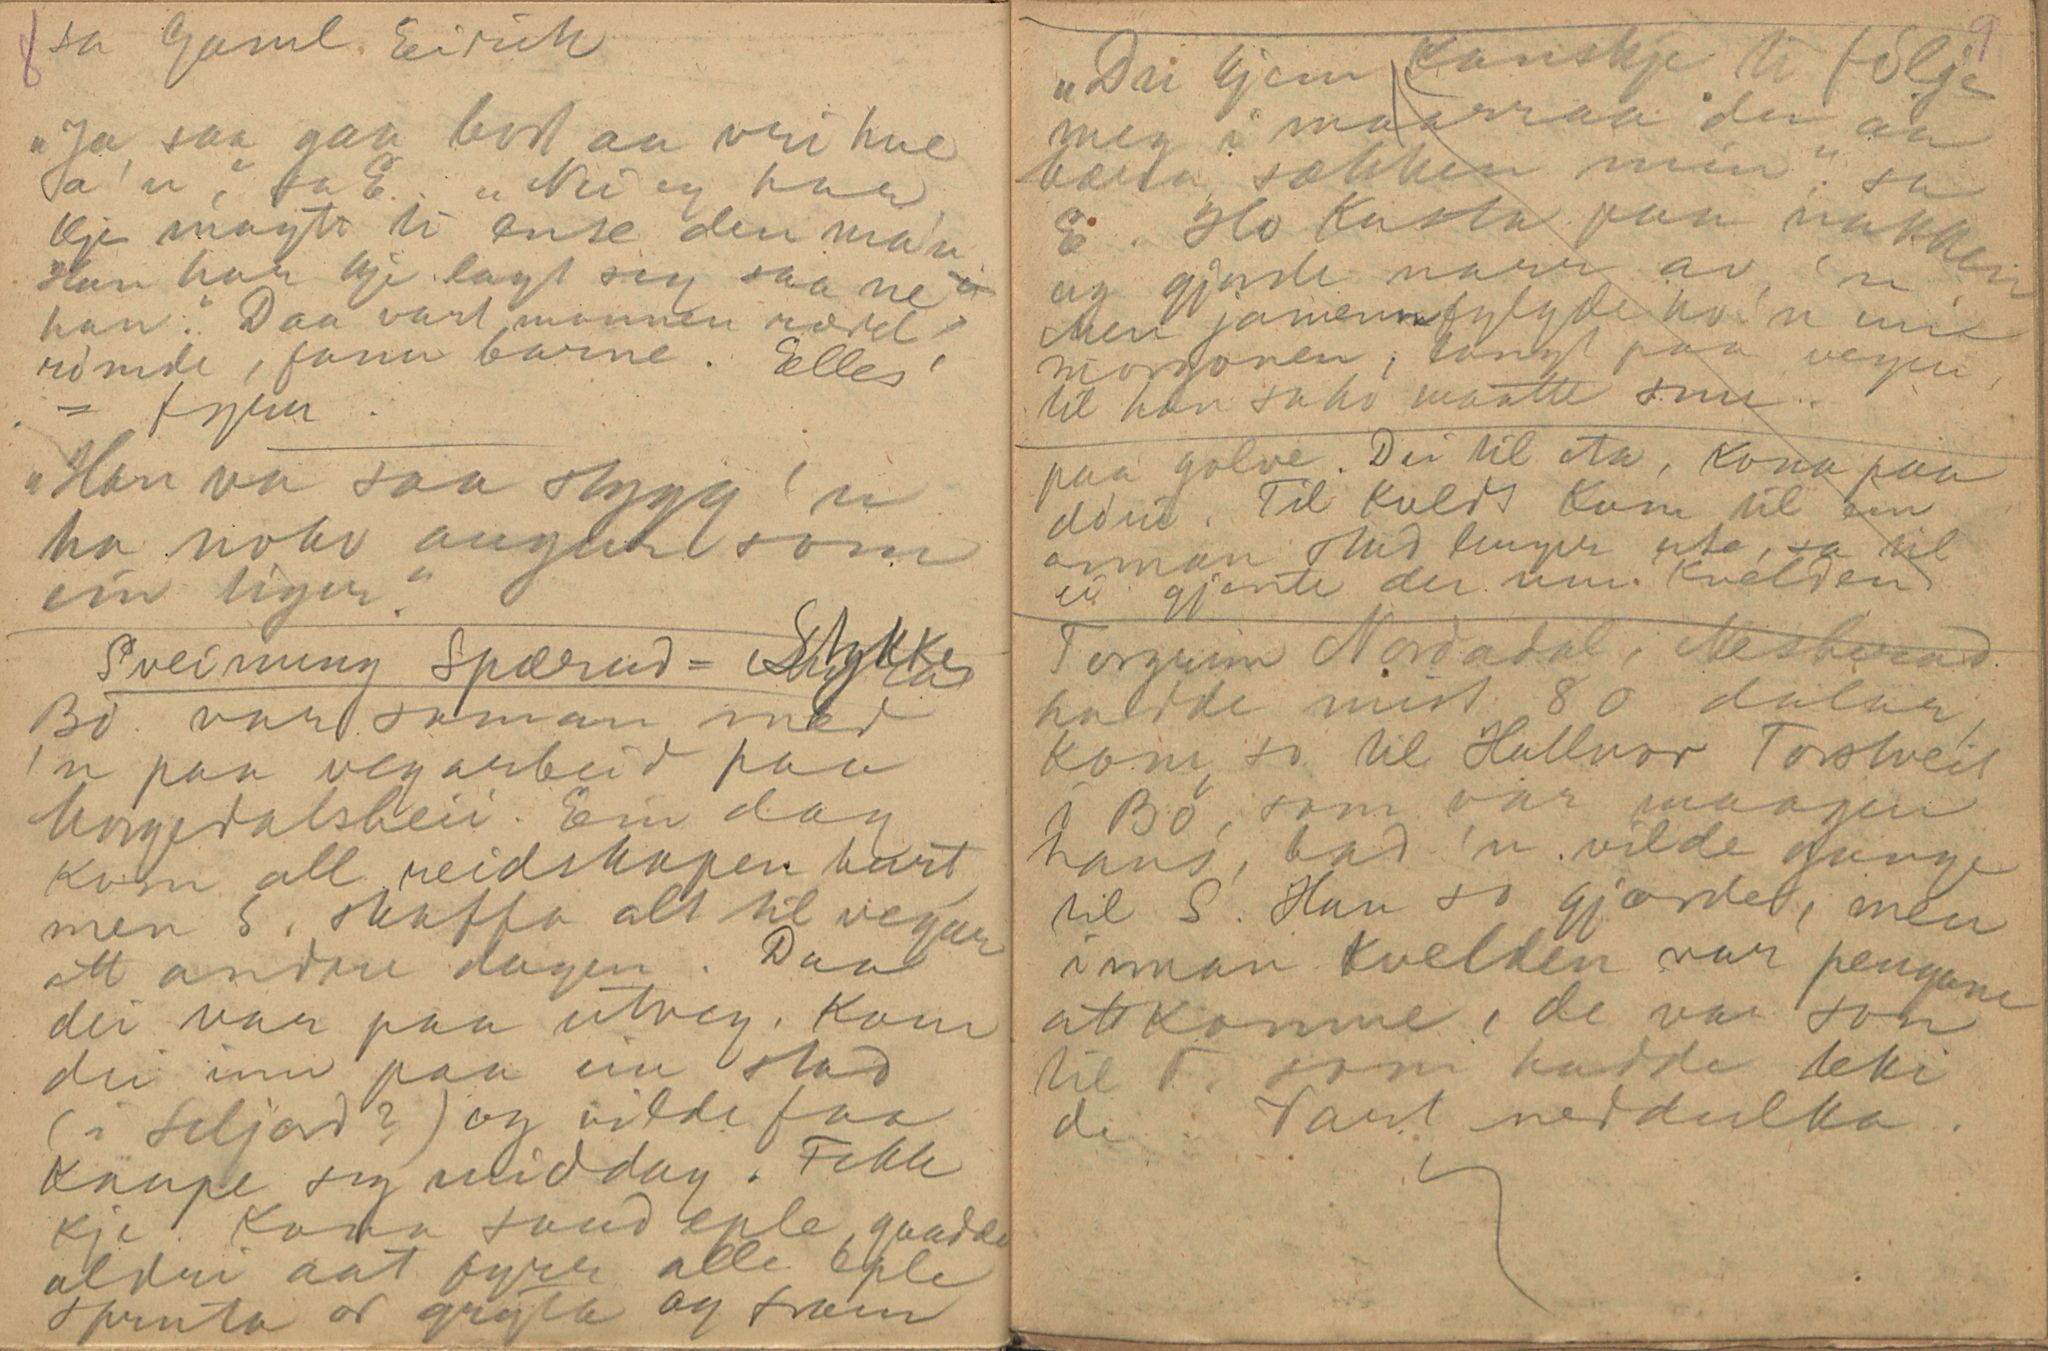 8
sa Gaml. Eirik
"Ja, saa gaa bort aa vri hue
a 'n", sa E. "Nei eg har
kje magt ti ense den ma'n
Han har kje lagt seg saa ne
han." Daa vart mannen rædd,
rømde, fann barne. Elles
= fyrr.
"Han va saa stygg 'n
ha noko augur som
ein tiger."
Sveinung Spærud = Stykke
Bø. var saman med
'n paa vegarbeid paa
Morgedalsheii. Ein dag
kom all reidskapen burt,
men S. skaffa alt til vegar
att andre dagen. Daa
dei var paa utveg, kom
dei inn paa ein stad
(i Seljord?) og vilde faa
kaupe seg middag. Fekk
kje. Kona saud eple, gaadde
aldri aat fyrr alle eple
spruta or gryta og svam
9
"Du kjem kanskje ti følje
meg i maarraa du aa
bæra sekken min," sa
E. Ho kasta paa nakken
og gjorde narr av 'n,
men jamenn fylgde ho 'n um
morgonen, langt paa vegen,
til han sa ho maatte snu.
paa golve. Dei til eta, kona paa
dørii. Til kvelds kom til ein
annan stad lenger ute, sa til
ei gjente der um kvelden
Torgrim Nordadal,
hadde mist 80 dalar,
kom so til Hallvor Torstveit
i Bø, som var maagen
hans, bad 'n vilde gange
til S. Han so gjorde, men
innan kvelden var pengane
attkomne, de var son
til T. som hadde teki
dei. Vart neddulka.